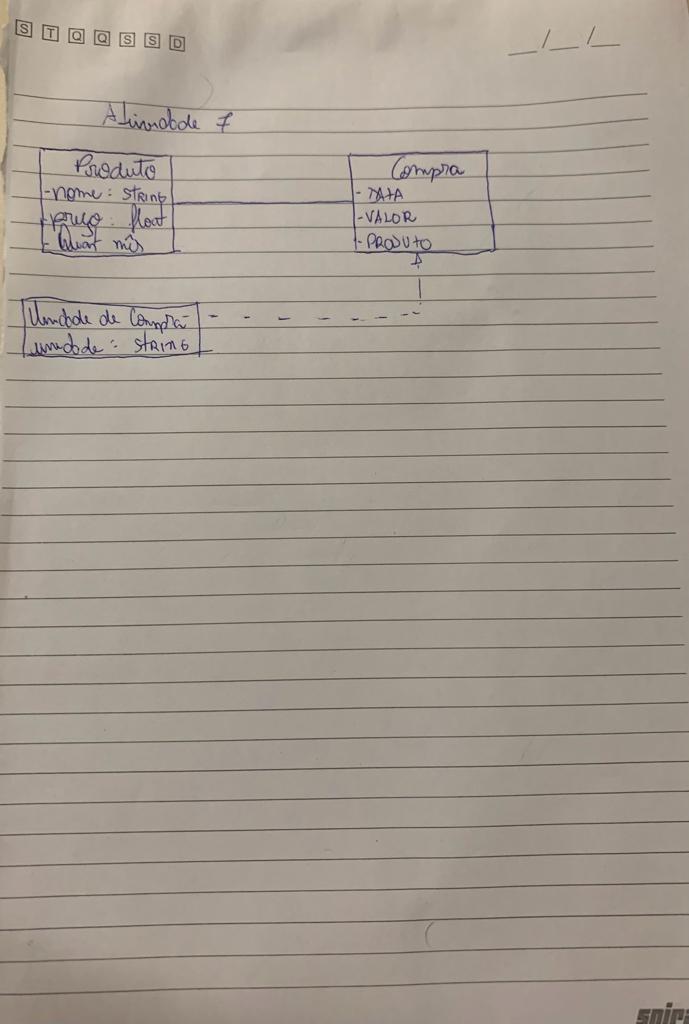 S T Q Q S S D
__/__/__
Atividade 7
Produto
- nome : STRING
- preço : float
- Quant mês
Compra
- DATA
- VALOR
- PRODUTO
Unidade de Compra
unidade : STRING